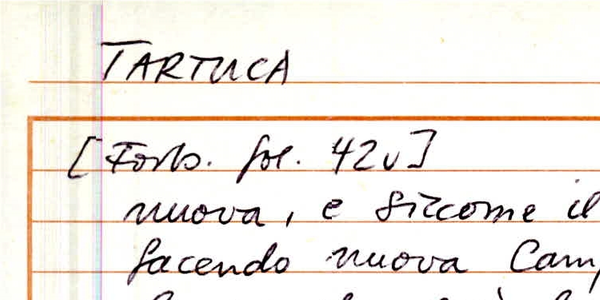 TARTUCA
[Forb. fol. 42v]
nuova, e siccome il
facendo nuova Camp